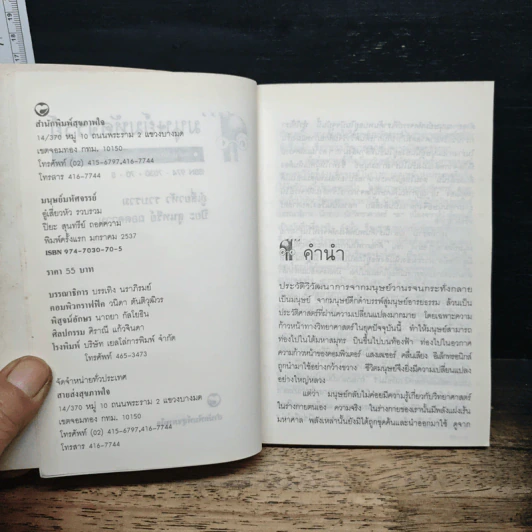 สำนักพิมพ์สุขภาพใจ
14/370 หมู่ 10 ถนนพระราม 2 แขวงบางมด
เขตจอมทอง กทม. 10150
โทรศัพท์ (02) 415-6797,416-7744
โทรสาร 416-7744
มนุษย์มหัศจรรย์
อู่เฮี่ยวหัว รวบรวม
ปิยะ สุนทรีย์ ถอดความ
พิมพ์ครั้งแรก มกราคม 2537
ISBN 974-7030-70-5
ราคา 55 บาท
บรรณาธิการ บรรเทิง นราภิรมย์
คอมพิวกราฟฟิค วนิดา ตันติวุฒิวร
พิสูจน์อักษร นาถยา กัลโยธิน
ศิลปกรรม ศิราณี แก้วจินดา
โรงพิมพ์ บริษัท เยลโล่การพิมพ์ จำกัด
โทรศัพท์ 465-3473
จัดจำหน่ายทั่วประเทศ
สายส่งสุขภาพใจ
14/370 หมู่ 10 ถนนพระราม 2 แขวงบางมด
เขตจอมทอง กทม. 10150
โทรศัพท์ (02) 415-6797,416-7744
โทรสาร 416-7744
คำนำ
ประวัติวิวัฒนาการจากมนุษย์วานรจนกระทั่งกลาย
เป็นมนุษย์ จากมนุษย์ดึกดำบรรพ์สู่มนุษย์อารยธรรม ล้วนเป็น
ประวัติศาสตร์ที่ผ่านความเปลี่ยนแปลงมากมาย โดยเฉพาะความ
ก้าวหน้าทางวิทยาศาสตร์ในยุคปัจจุบันนี้ ทำให้มนุษย์สามารถ
ท่องไปในใต้มหาสมุทร บินขึ้นไปบนท้องฟ้า ท่องไปในอวกาศ
ความก้าวหน้าของคอมพิวเตอร์ แสงเลเซอร์ คลื่นเสียง อิเล็กทรอนิกส์
ถูกนำมาใช้อย่างกว้างขวาง ชีวิตมนุษย์จึงยิ่งมีความเปลี่ยนแปลง
อย่างใหญ่หลวง
แต่ว่า มนุษย์กลับไม่ค่อยมีความรู้เกี่ยวกับวิทยาศาสตร์
ในร่างกายตนเอง ความจริง ในร่างกายของเรานั้นมีพลังแฝงเร้น
มหาศาล พลังเหล่านั้นยังมิได้ถูกขุดค้นและนำออกมาใช้ ดูจาก